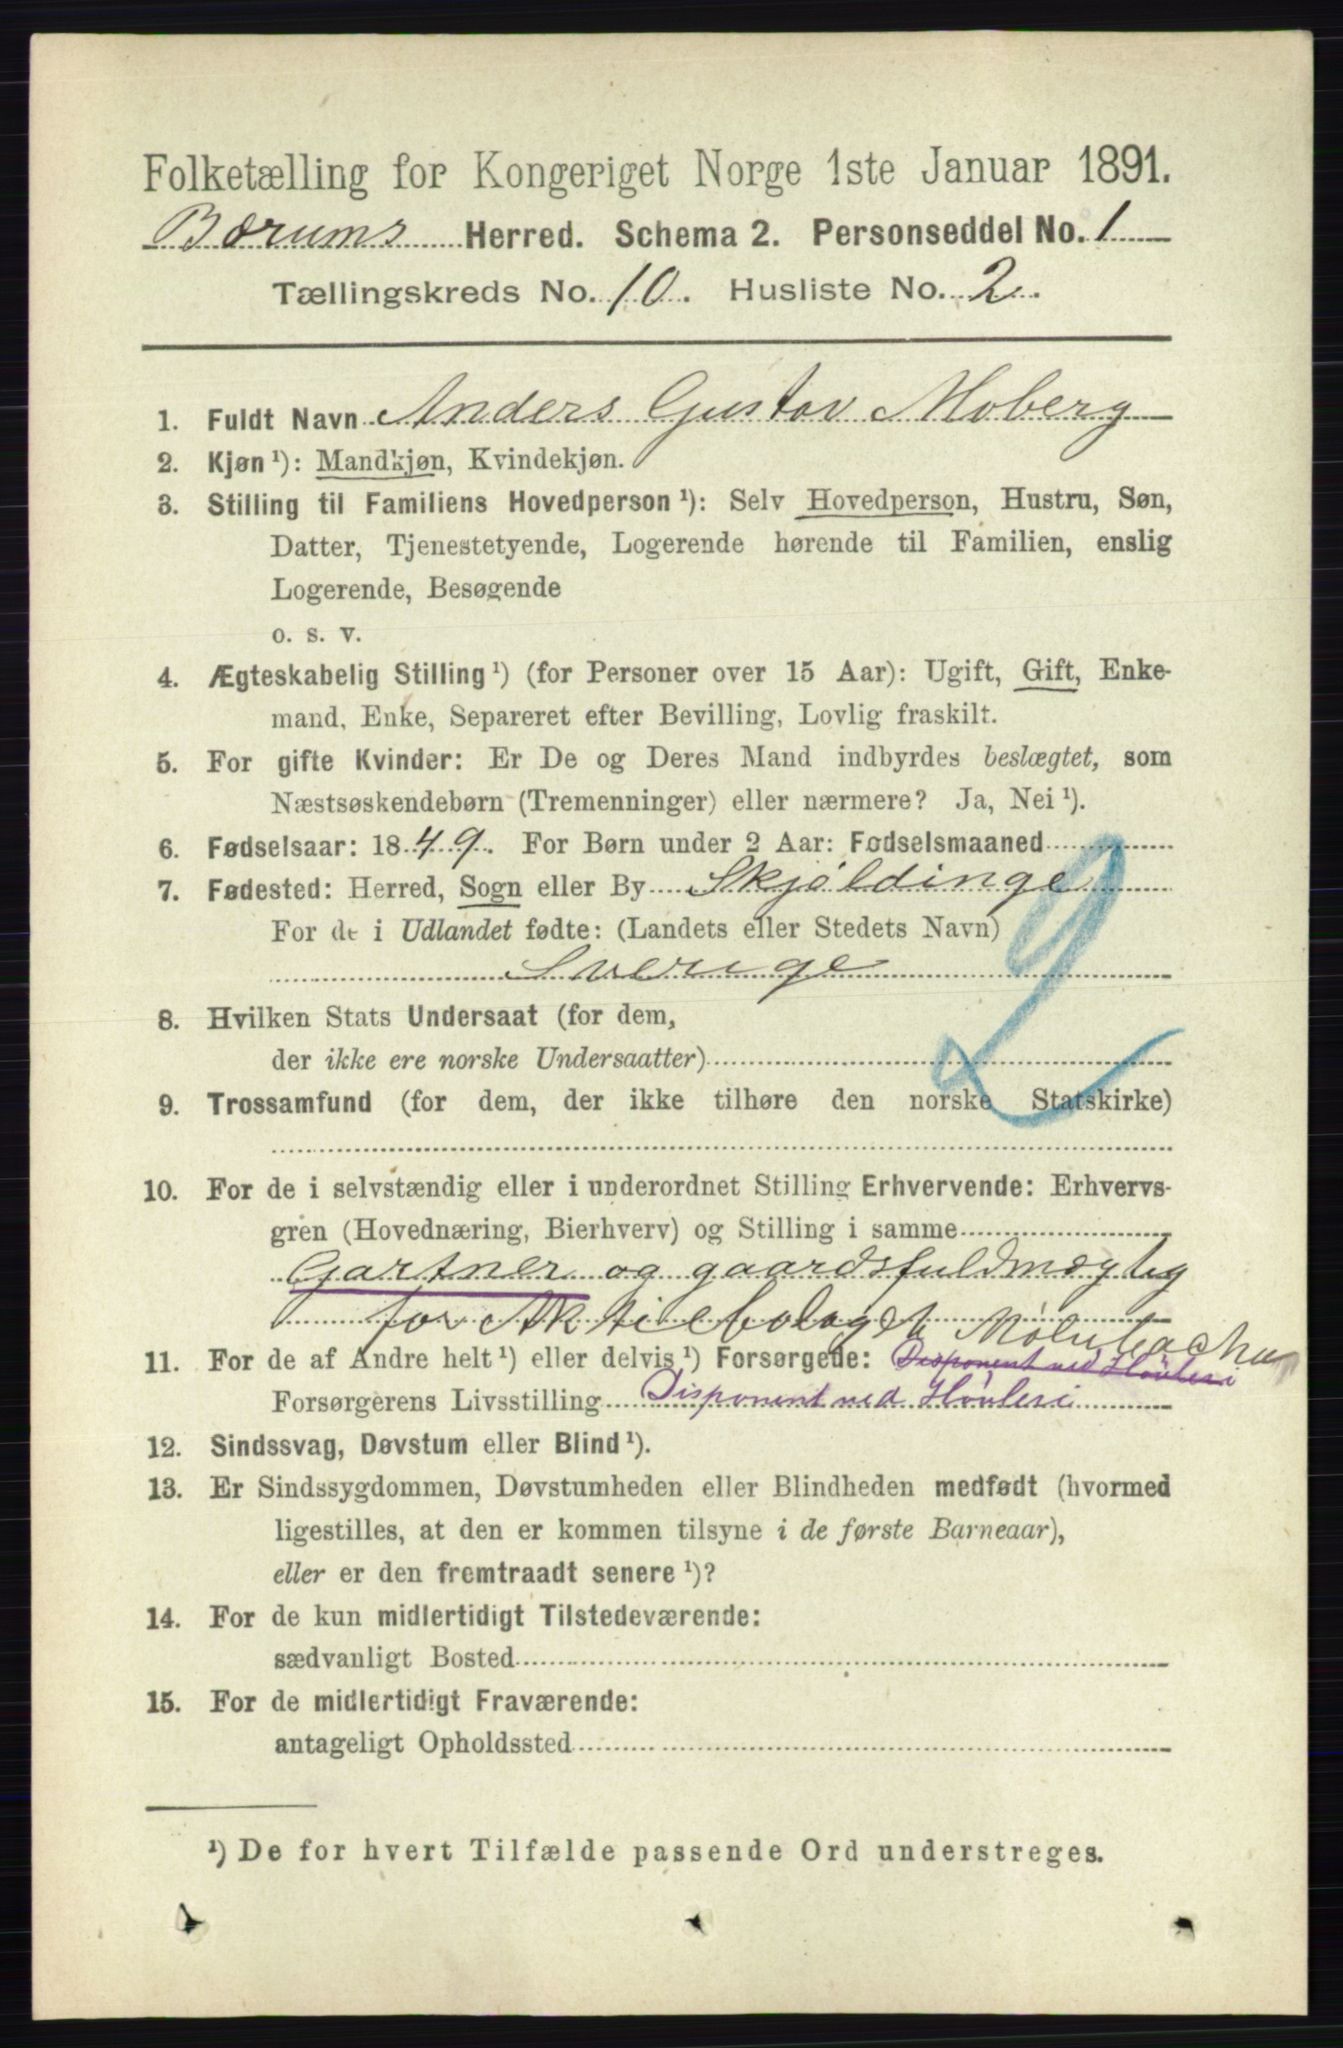 Folketælling for Kongeriget Norge 1ste Januar 1891.
Bærums Herred. Schema 2. Personseddel No. 1
Tællingskreds No. 10. Husliste No. 2.
1. Fuldt Navn Anders Gustav Moberg
2. Kjøn ¹): Mandkjøn, Kvindekjøn.
3. Stilling til Familiens Hovedperson ¹): Selv Hovedperson, Hustru, Søn,
Datter, Tjenestetyende, Logerende hørende til Familien, enslig
Logerende, Besøgende
o. s. v.
4. Ægteskabelig Stilling ¹) (for Personer over 15 Aar): Ugift, Gift, Enke-
mand, Enke, Separeret efter Bevilling, Lovlig fraskilt.
5. For gifte Kvinder: Er De og Deres Mand indbyrdes beslægtet, som
Næstsøskendebørn (Tremenninger) eller nærmere? Ja, Nei ¹).
6. Fødselsaar: 1849. For Børn under 2 Aar: Fødselsmaaned
7. Fødested: Herred, Sogn eller By Skjøldinge
For de i Udlandet fødte: (Landets eller Stedets Navn)
Sverige
8. Hvilken Stats Undersaat (for dem,
der ikke ere norske Undersaatter)
9. Trossamfund (for dem, der ikke tilhøre den norske Statskirke)
10. For de i selvstændig eller i underordnet Stilling Erhvervende: Erhvervs-
gren (Hovednæring, Bierhverv) og Stilling i samme
Gartner og gaardsfuldmægtig
for Aktiebolaget
11. For de af Andre helt ¹) eller delvis ¹) Forsørgede: Disponent ved Høvleri
Forsørgerens Livsstilling Disponent ved Høvleri
12. Sindssvag, Døvstum eller Blind ¹).
13. Er Sindssygdommen, Døvstumheden eller Blindheden medfødt (hvormed
ligestilles, at den er kommen tilsyne i de første Barneaar),
eller er den fremtraadt senere ¹)?
14. For de kun midlertidigt Tilstedeværende:
sædvanligt Bosted
15. For de midlertidigt Fraværende:
antageligt Opholdssted
¹) De for hvert Tilfælde passende Ord understreges.